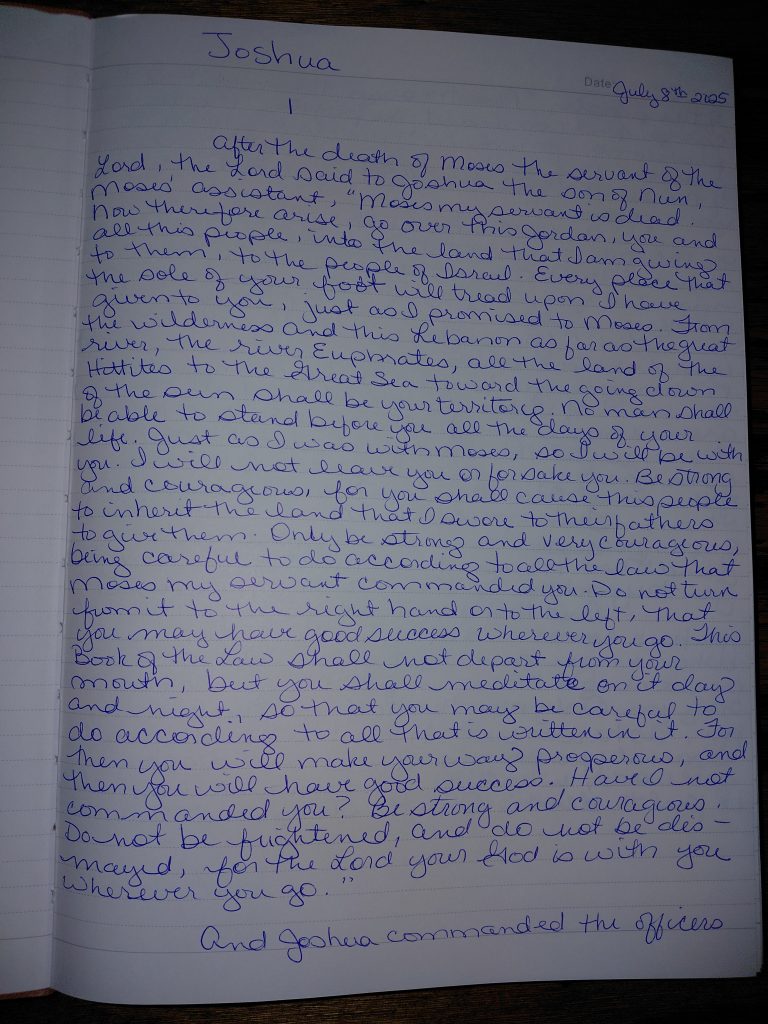 Joshua
Date July 8th 2025
1
After the death of Moses the servant of the
Lord, the Lord said to Joshua the son of Nun,
Moses' assistant, "Moses my servant is dead.
Now therefore arise, go over this Jordan, you and
all this people, into the land that I am giving
to them, to the people of Israel. Every place that
the sole of your foot will tread upon I have
given to you, just as I promised to Moses. From
the wilderness and this Lebanon as far as the great
river, the river Euphrates, all the land of the
Hittites to the Great Sea toward the going down
of the sun shall be your territory. No man shall
be able to stand before you all the days of your
life. Just as I was with Moses, so I will be with
you. I will not leave you or forsake you. Be strong
and courageous, for you shall cause this people
to inherit the land that I swore to their fathers
to give them. Only be strong and very courageous,
being careful to do according to all the law that
Moses my servant commanded you. Do not turn
from it to the right hand or to the left, that
you may have good success wherever you go. This
Book of the Law shall not depart from your
mouth, but you shall meditate on it day
and night, so that you may be careful to
do according to all that is written in it. For
then you will make your way prosperous, and
then you will have good success. Have I not
commanded you? Be strong and courageous.
Do not be frightened, and do not be dis-
mayed, for the Lord your God is with you
wherever you go."
And Joshua commanded the officers